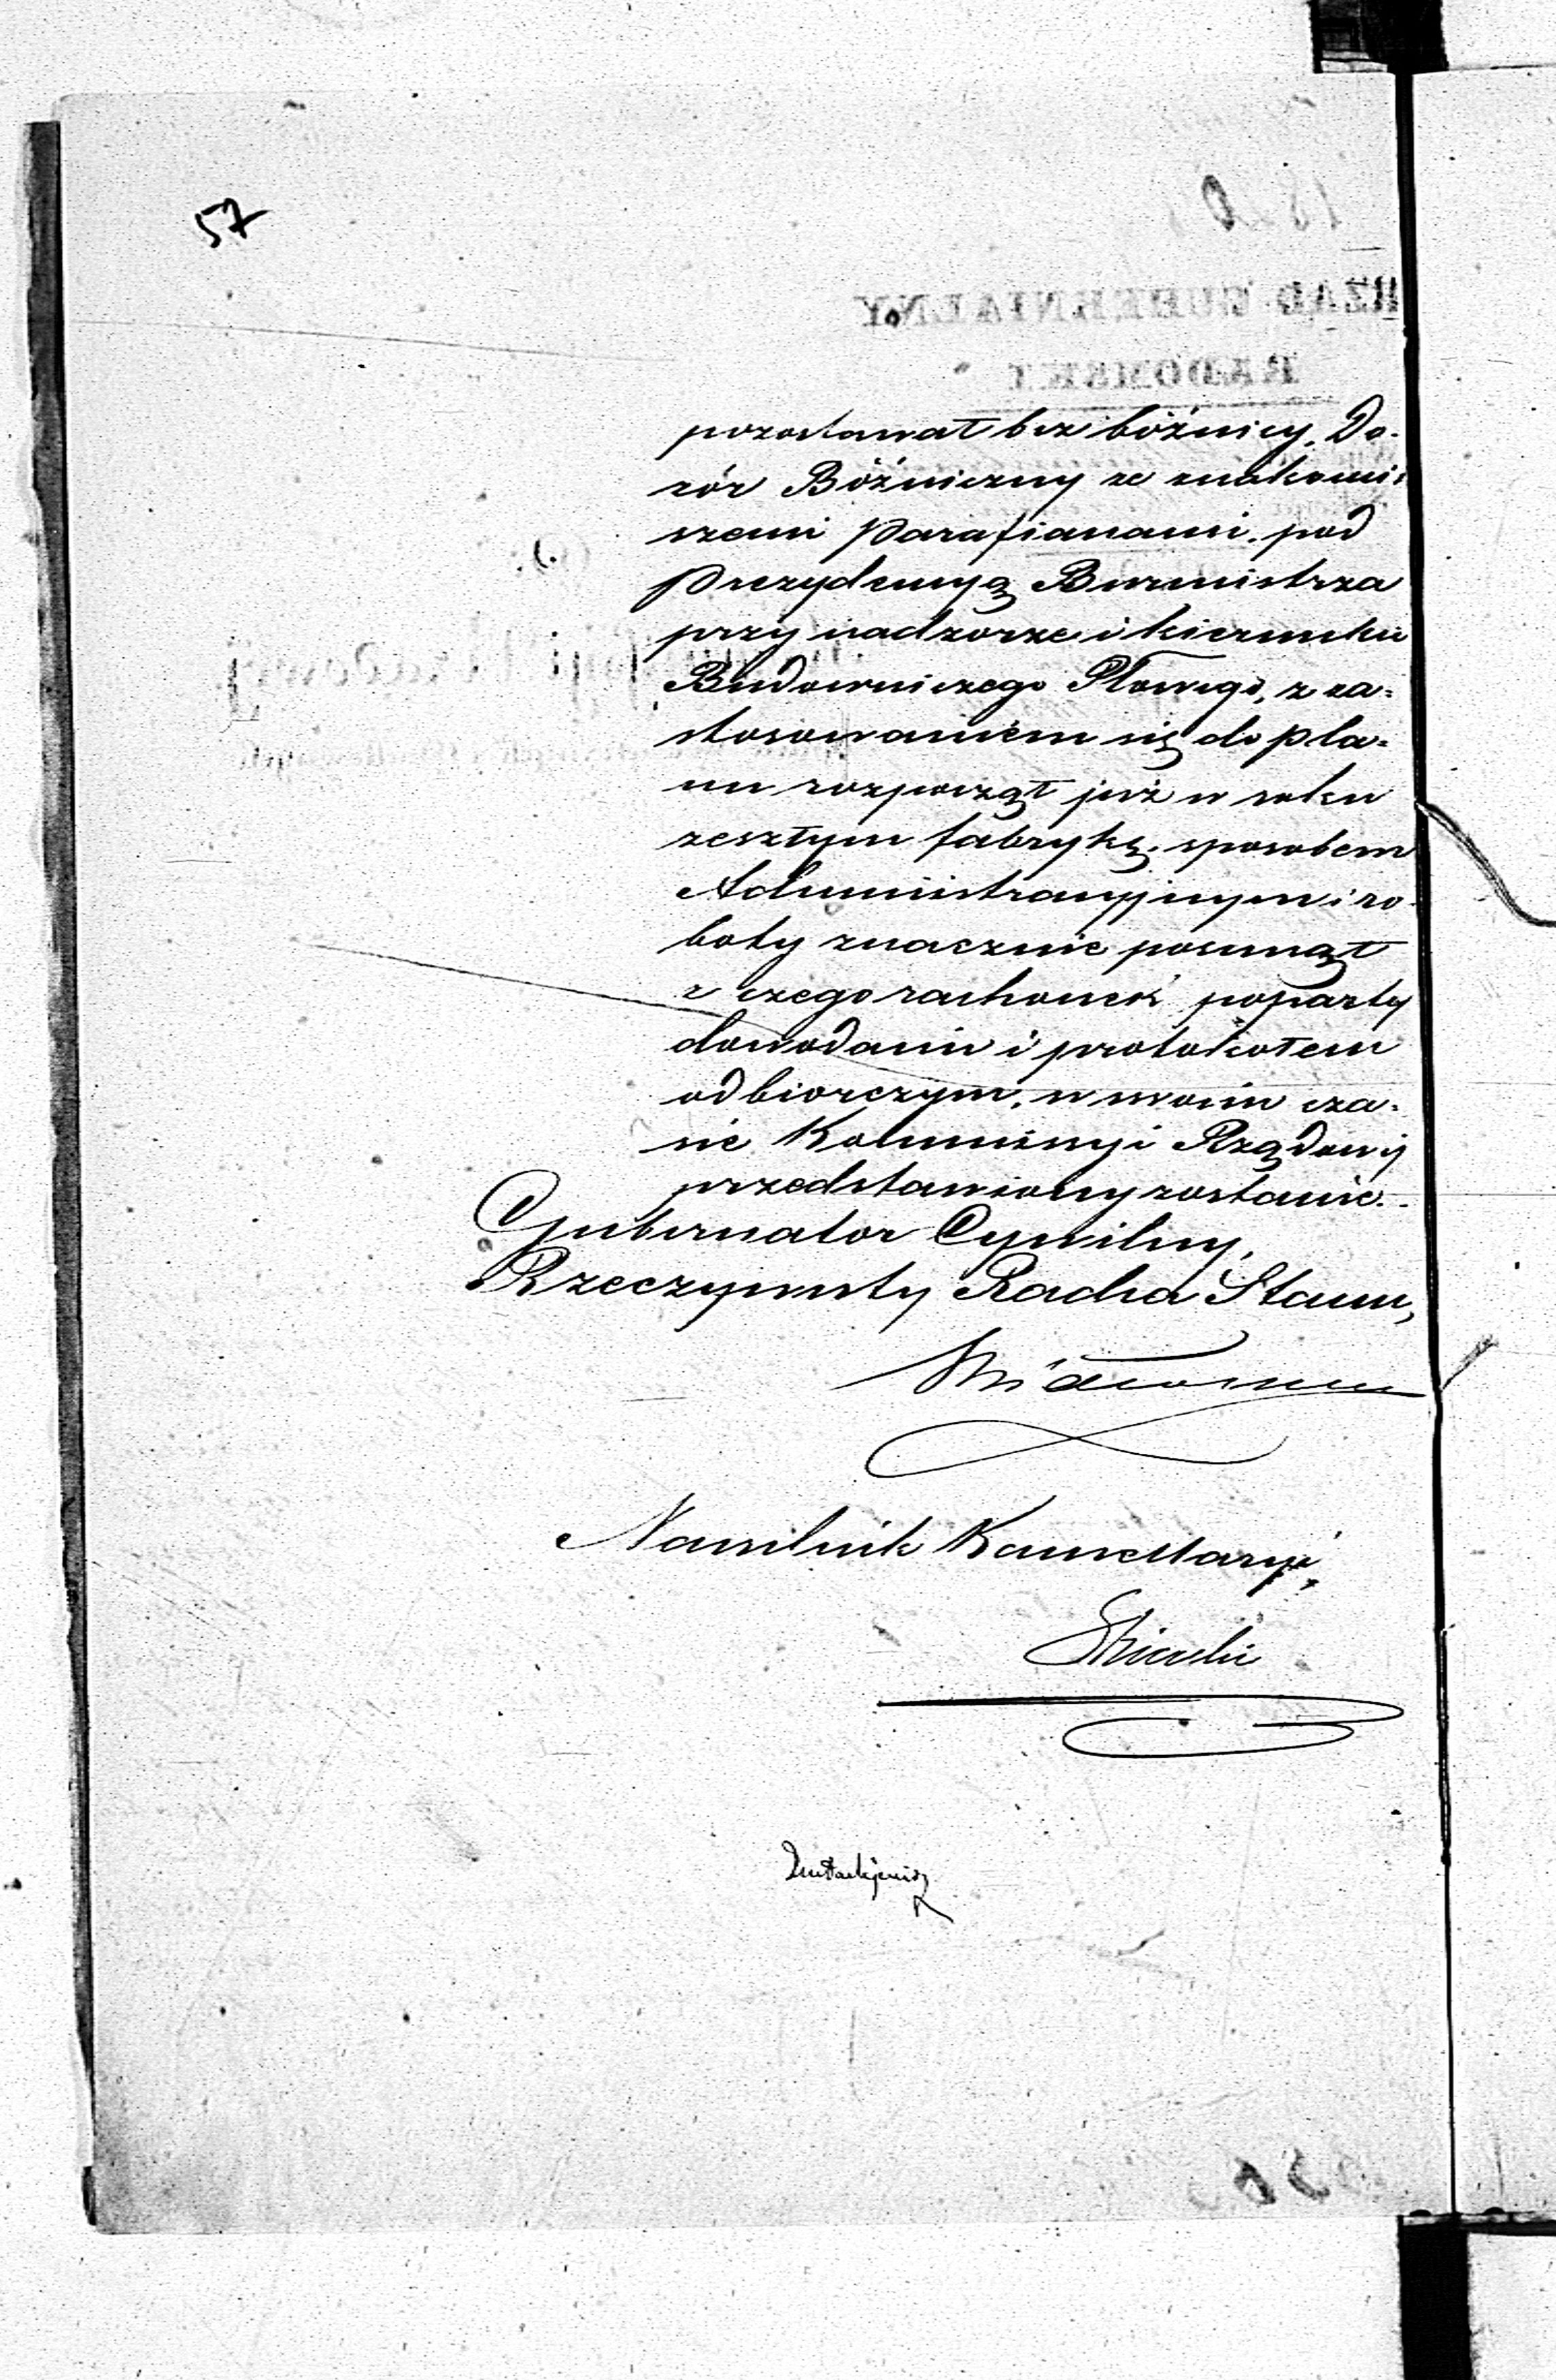 57
pozostawał bez bóżnicy, Do-
zór Bóżniczny ze znakomi-
szemi Parafianami, pod
Prezydencyą Burmistrza
przy nadzorze i kierunku
Budowniczego Płowego, z za=
stosowaniem się do pla=
nu rozpoczął już w roku
zeszłym fabrykę, sposobem
Administracyjnym i ro-
boty znacznie posunął
z czego rachunek poparty
dowodami i protokołem
odbiorczym, w swoim cza=
sie Kommissyi Rządowéj
przedstawiony zostanie.
Gubernator Cywilny,
Rzeczywisty Radca Stanu,
Naczelnik Kancellaryi,